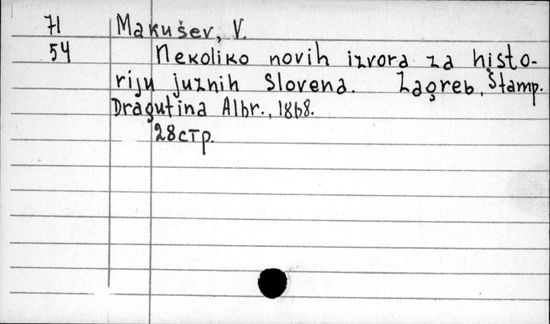 71 Makušev, V.
54 Nekoliko novih izvora za histo-
riju juznih Slovena. Zagreb, Štamp.
Dragutina Albr., 1868.
28 стр.